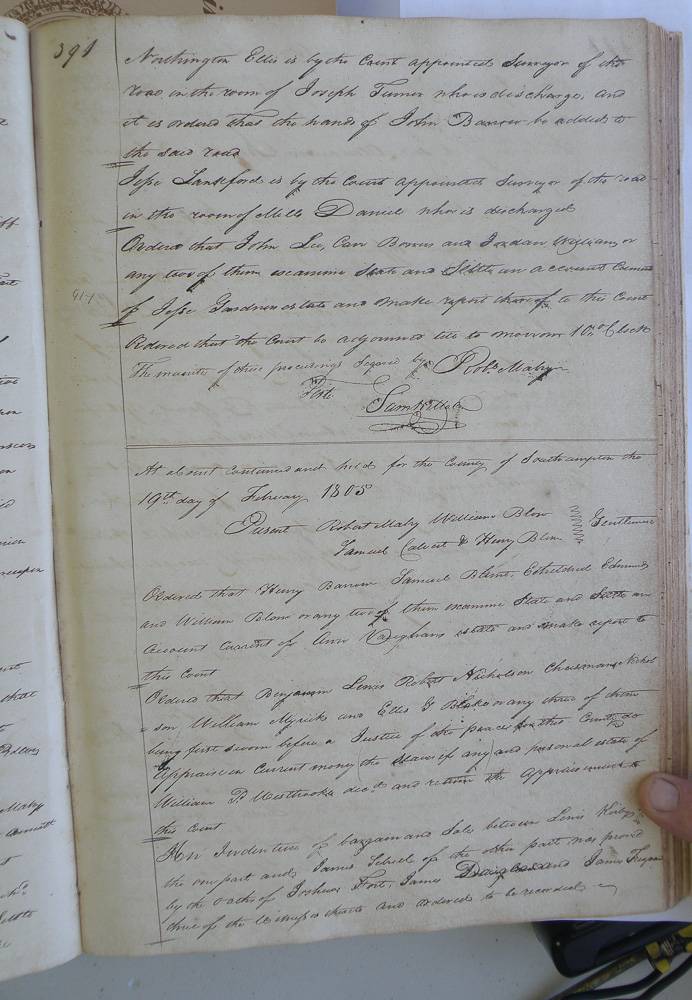 391
Northington Ellis is by the Court appointed Surveyor of the
road in the room of Joseph Turner who is discharge, and
it is ordered that the hands of John Barrow be added to
the said road
Jesse Lankford is by the Court appointed Surveyor of the road
in the room of Mills Daniel who is discharged
Ordered that John Lee, Carr Bowers and Jordan Williams or
any two of them examine State and Settle an account Current
of Jesse Gardners estate and make report thereof to this Court
Ordered that the Court be adjourned till to morrow 10 o Clock
The minutes of these proceedings Signed by Robt Mabry
Teste
Saml Kello
At a Court continued and held for the County of Southampton the
19th day of February 1805
Present Robert Mabry William Blow Gentlemen
Samuel Calvert & Henry Blunt
Ordered that Henry Barrow Samuel Blunt, Etheldred Edmunds
and William Blow or any two of them examine State and Settle an
account Current of Ann Vaughans estate and make report to
this Court
Ordered that Benjamin Lewis Robert Nicholson Chrisman Nichol
=son William Myrick and Ellis G Blake or any three of them
being first sworn before a Justice of the peace for this County do
appraise in Current money the slaves if any and personal estate of
William P. Westbrook decd. and return the appraisement to
this Court
An Indenture of bargain and Sale between Lewis Kirby
the one part and James of the other part was proved
by the oaths of Joshua Fort, James and James
three of the Witnesses thereto and ordered to be recorded